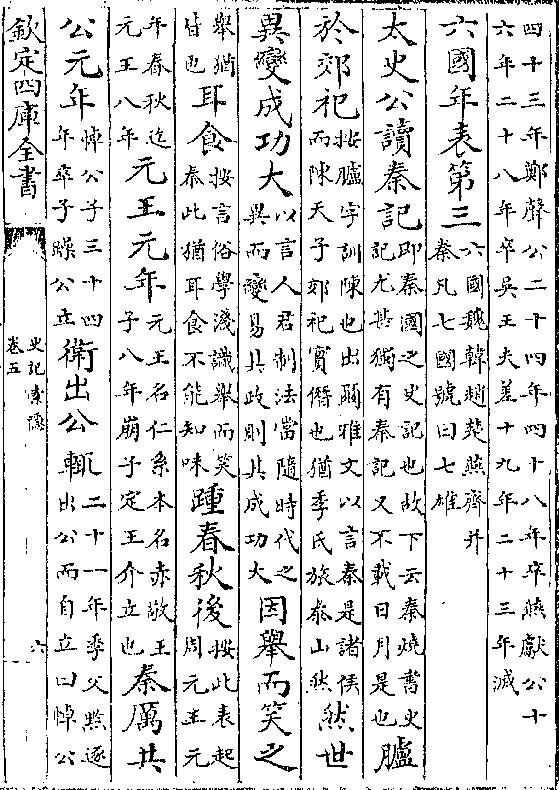 四十三年鄭聲公二十四年四十八年卒燕獻公十
六年二十八年卒吳王夫差十九年二十三年滅
六國年表第三六國魏韓趙楚燕齊并
秦凡七國號曰七雄
太史公讀秦記即秦國之史記也故下云秦燒書史
記尤甚獨有秦記又不載日月是也臚
於郊祀按臚字訓陳也出爾雅文以言秦是諸侯
而陳天子郊祀實僭也猶季氏旅泰山然然世
異變成功大以言人君制法當隨時代之
異而變易其政則其成功大因舉而笑之
舉猶
皆也耳食按言俗學淺識舉而笑
秦此猶耳食不能知味踵春秋後按此表起
周元王元
年春秋迄
元王八年元王元年元王名仁系本名赤敬王
子八年崩子定王介立也秦厲共
公元年悼公子三十四
年卒子躁公立衛出公輒二十一年季父黚逐
出公而自立曰悼公
欽定四庫全書
史記索隱
卷五
六